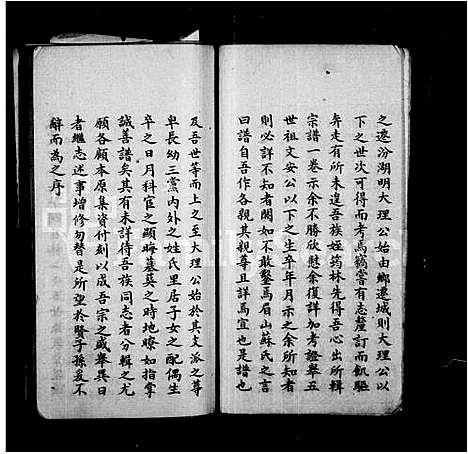 之遼汾湖明大理公始由鄉遷城則大理公以
下之世次可得而考焉竊嘗有志釐訂而飢驅
奔走有所未遑吾族姪筠林先得吾心出所輯
宗譜一卷示余不勝欣慰余復詳加考證舉五
世祖文安公以下之生卒年月示之余所知者
則必詳不知者闕如不敢鑿焉眉山蘇氏之言
曰譜自吾作各親其親尊且詳焉宜也是譜也
及吾世等而上之至大理公始於其支派之尊
卑長幼三黨內外之姓氏里居子女之配偶生
卒之日月科宦之顯晦墓葬之時地瞭如指掌
誠善譜矣其有未詳待吾族同志者分輯之尤
願各顧本原集資付刻以成吾宗之盛舉異日
者繼志述事增修勿替是所望於賢子孫爰不
辭而為之序